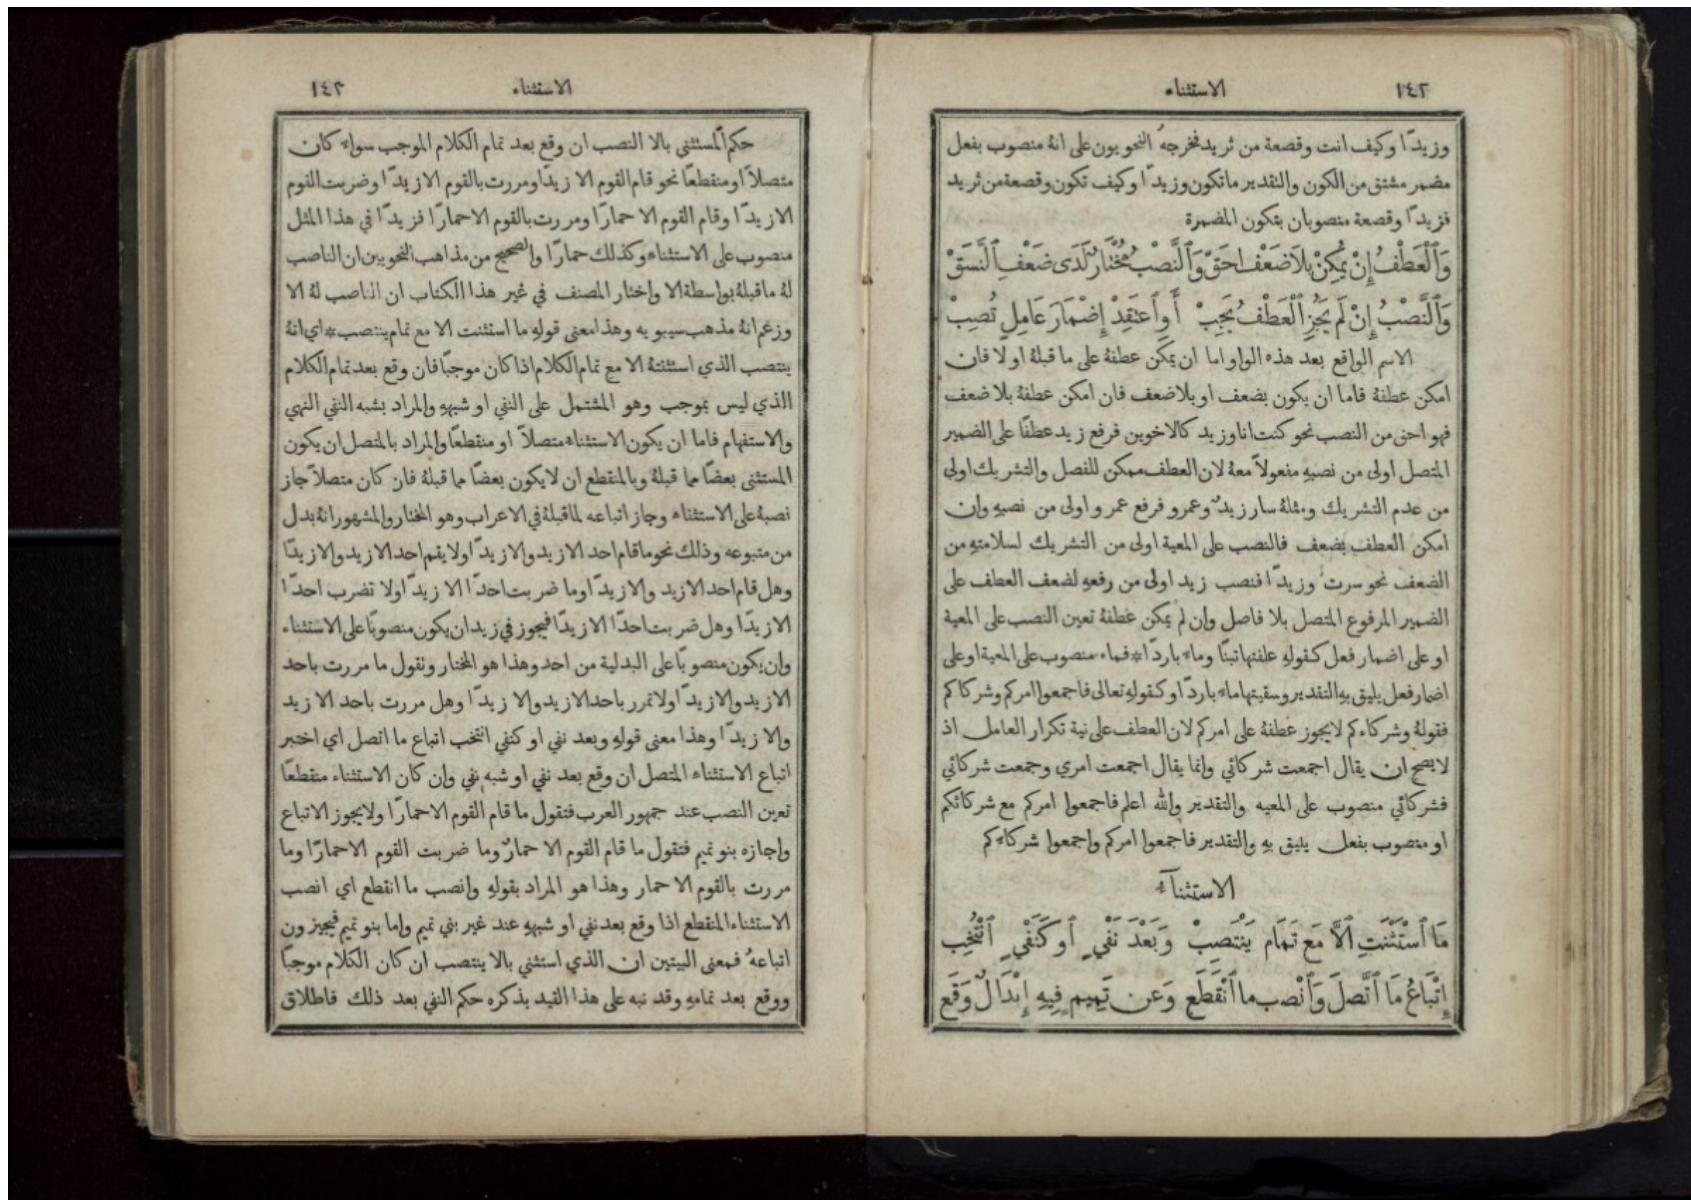 الاستثناء ١٤٢
وزيدًا وكيف انت وقصعة من ثريد فخرجهُ النحويون على انهُ منصوب بفعل
مضمر مشتق من الكون والتقدير ما تكون وزيدًا وكيف تكون وقصعة من ثريد
فزيدًا وقصعة منصوبان بتكون المضمرة
وَٱلْعَطْفُ إِنْ يُمْكِنْ بِلَا ضَعْفٍ احَقّْ وَٱلنَّصْبُ مُخْتَارٌ لَدَى ضَعْفِ ٱلنَّسَقْ
وَٱلنَّصْبُ إِنْ لَم يَجُزِ ٱلْعَطْفُ يَجِبْ أَوِ ٱعْتَقِدْ إِضْمَارَ عَامِلٍ تُصِبْ
الاسم الواقع بعد هذه الواو اما ان يمكن عطفهُ على ما قبلهُ او لا فان
امكن عطفهُ فاما ان يكون بضعف او بلا ضعف فان امكن عطفهُ بلا ضعف
فهو احق من النصب نحو كنت انا وزيد كالاخوين فرفع زيد عطفًا على الضمير
المتصل اولى من نصبهِ مفعولاً معهُ لان العطف ممكن للفصل والتشريك اولى
من عدم التشريك ومثلهُ سار زيدٌ وعمرو فرفع عمرو اولى من نصبهِ وان
امكن العطف بضعف فالنصب على المعية اولى من التشريك لسلامتهِ من
الضعف نحو سرتُ وزيدًا فنصب زيد اولى من رفعهِ لضعف العطف على
الضمير المرفوع المتصل بلا فاصل وان لم يمكن عطفهُ تعين النصب على المعية
او على اضمار فعل كقولهِ علفتها تبنًا وماء باردًا * فماء منصوب على المعية او على
اضمار فعل يليق بهِ التقدير وسقيتها ماء باردًا وكقولهِ تعالى فاجمعوا امركم وشركاكم
فقولهُ وشركاءكم لا يجوز عطفهُ على امركم لان العطف على نية تكرار العامل اذ
لا يصح ان يقال اجمعت شركائي وانما يقال اجمعت امري وجمعت شركائي
فشركائي منصوب على المعيه والتقدير والله اعلم فاجمعوا امركم مع شركائكم
او منصوب بفعل يليق بهِ والتقدير فاجمعوا امركم واجمعوا شركاءكم
الاستثنآء
مَا ٱسْتَثْنَتِ ٱلَّا مَعْ تَمَام يَنْتَصِبْ وَبَعْدَ نَفْيٍ أَو كَنَفْيٍ ٱنْتُخِبْ
إِتْبَاعُ مَا ٱتَّصَلَ وَٱنْصِب ما ٱنْقَطَع وَعن تَمِيمٍ فِيهِ إِبْدَالٌ وَقَع
الاستثناء ١٤٣
حكم المستثنى بالا النصب ان وقع بعد تمام الكلام الموجب سواء كان
متصلاً او منقطعًا نحو قام القوم الا زيدًا ومررت بالقوم الا زيدًا وضربت القوم
الا زيدًا وقام القوم الا حمارًا ومررت بالقوم الا حمارًا فزيدًا في هذا المثل
منصوب على الاستثناء وكذلك حمارًا والصحيح من مذاهب النحويين ان الناصب
لهُ ما قبلهُ بواسطة الا واختار المصنف في غير هذا الكتاب ان الناصب لهُ الا
وزعم انهُ مذهب سيبويه وهذا معنى قولهِ ما استثنت الا مع تمام ينتصب * اي انهُ
ينتصب الذي استثنتهُ الا مع تمام الكلام اذا كان موجبًا فان وقع بعد تمام الكلام
الذي ليس بموجب وهو المشتمل على النفي او شبههِ والمراد بشبه النفي النهي
والاستفهام فاما ان يكون الاستثناء متصلاً او منقطعًا والمراد بالمتصل ان يكون
المستثنى بعضًا مما قبلهُ وبالمنقطع ان لا يكون بعضًا مما قبلهُ فان كان متصلاً جاز
نصبهُ على الاستثناء وجاز اتباعه لما قبلهُ في الاعراب وهو المختار والمشهور انهُ بدل
من متبوعه وذلك نحو ما قام احد الا زيد والا زيدًا ولا يقم احد الا زيد والا زيدًا
وهل قام احد الا زيد والا زيدًا وما ضربت احدًا الا زيدًا ولا تضرب احدًا
الا زيدًا وهل ضربت احدًا الا زيدًا فيجوز في زيد ان يكون منصوبًا على الاستثناء
وان يكون منصوبًا على البدلية من احد وهذا هو المختار وتقول ما مررت باحد
الا زيد والا زيدًا ولا تمرر باحد الا زيد والا زيدًا وهل مررت باحد الا زيد
والا زيدًا وهذا معنى قولهِ وبعد نفي او كنفي انتخب اتباع ما اتصل اي اختير
اتباع الاستثناء المتصل ان وقع بعد نفي او شبه نفي وان كان الاستثناء منقطعًا
تعين النصب عند جمهور العرب فتقول ما قام القوم الا حمارًا ولا يجوز الاتباع
واجازه بنو تميم فتقول ما قام القوم الا حمارٌ وما ضربت القوم الا حمارًا وما
مررت بالقوم الا حمار وهذا هو المراد بقولهِ وانصب ما انقطع اي انصب
الاستثناء المنقطع اذا وقع بعد نفي او شبههِ عند غير بني تميم واما بنو تميم فيجيزون
اتباعهُ فمعنى البيتين ان الذي استثني بالا ينتصب ان كان الكلام موجبًا
ووقع بعد تمامهِ وقد نبه على هذا القيد بذكره حكم النفي بعد ذلك فاطلاق